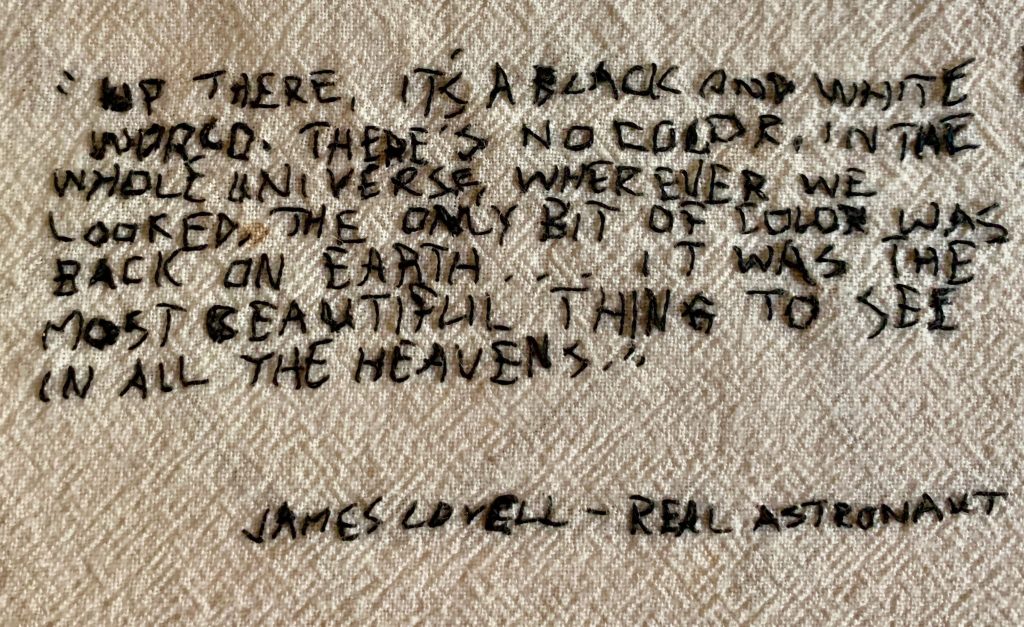 "UP THERE, IT'S A BLACK AND WHITE
WORLD. THERE'S NO COLOR. IN THE
WHOLE UNIVERSE, WHEREVER WE
LOOKED, THE ONLY BIT OF COLOR WAS
BACK ON EARTH.... IT WAS THE
MOST BEAUTIFUL THING TO SEE
IN ALL THE HEAVENS."
JAMES LOVELL - REAL ASTRONAUT